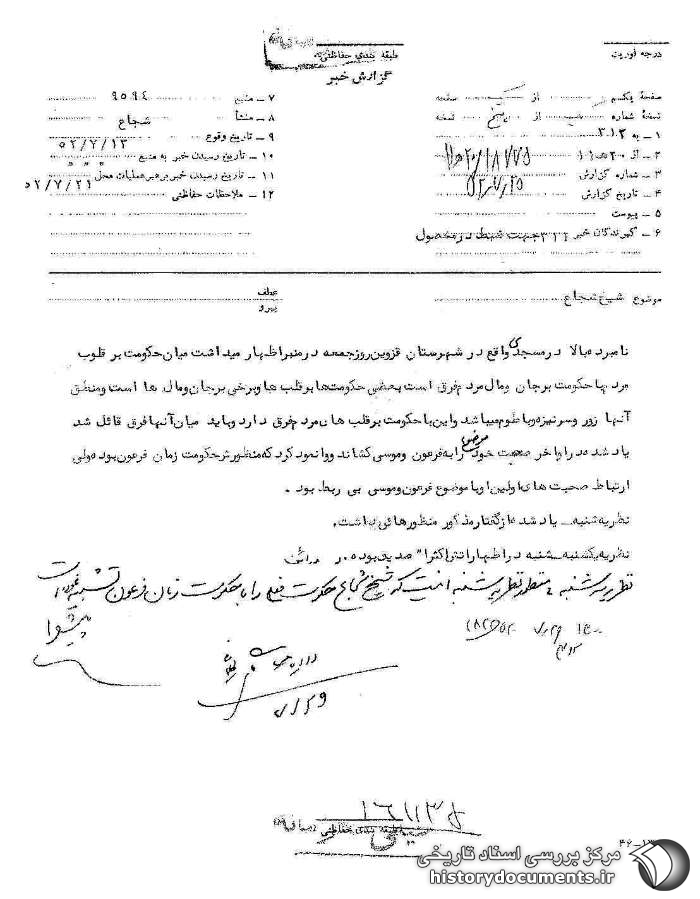 طبقه بندی حفاظتی
درجه فوریت
گزارش خبر
صفحهٔ یکم از یک صفحه
نسخهٔ شماره از نسخه
۱ ــ به ۳۱۲
۲ ــ از ۲۰ هـ ۱۱
۳ ــ شماره گزارش
۴ ــ تاریخ گزارش
۵ ــ پیوست
۶ ــ گیرندگان خبر ۳۲۱ جهت ضبط در محصول
۷ ــ منبع ۹۵۹۴
۸ ــ منشأ شجاع
۹ ــ تاریخ وقوع ۵۲/۷/۱۳
۱۰ ــ تاریخ رسیدن خبر به منبع " " "
۱۱ ــ تاریخ رسیدن خبر برهبر عملیات محل ۵۲/۷/۲۱
۱۲ ــ ملاحظات حفاظتی
موضوع شیخ شجاع
عطف
پیرو
نامبرده بالا در مسجدی واقع در شهرستان قزوین روز جمعه در منبر اظهار میداشت میان حکومت بر قلوب
مردم با حکومت بر جان و مال مردم فرق است بعضی حکومت‌ها بر قلب ها و برخی بر جان و مال ها است و منطق
آنها زور و سرنیزه و باطوم میباشد و این با حکومت بر قلب های مردم فرق دارد و باید میان آنها فرق قائل شد
یاد شده در اواخر صحبت خود موضوع را به فرعون و موسی کشاند و وانمود کرد که منظورش حکومت زمان فرعون بوده ولی
ارتباط صحبت های اولین او با موضوع فرعون و موسی بی ربط بود .
نظریه شنبه ــ یاد شده از گفتار مذکور منظورهائی داشت .
نظریه یکشنبه ــ شنبه در اظهاراتش اکثرا" صدیق بوده.
نظریه سه شنبه ، منظور نظریه شنبه اینست که شیخ شجاع حکومت فعلی را با حکومت زمان فرعون تشبیه نموده است
پیشوا
۷/۲۹
۱۶۱۱۳۵
طبقه بندی حفاظتی
مرکز بررسی اسناد تاریخی
historydocuments.ir